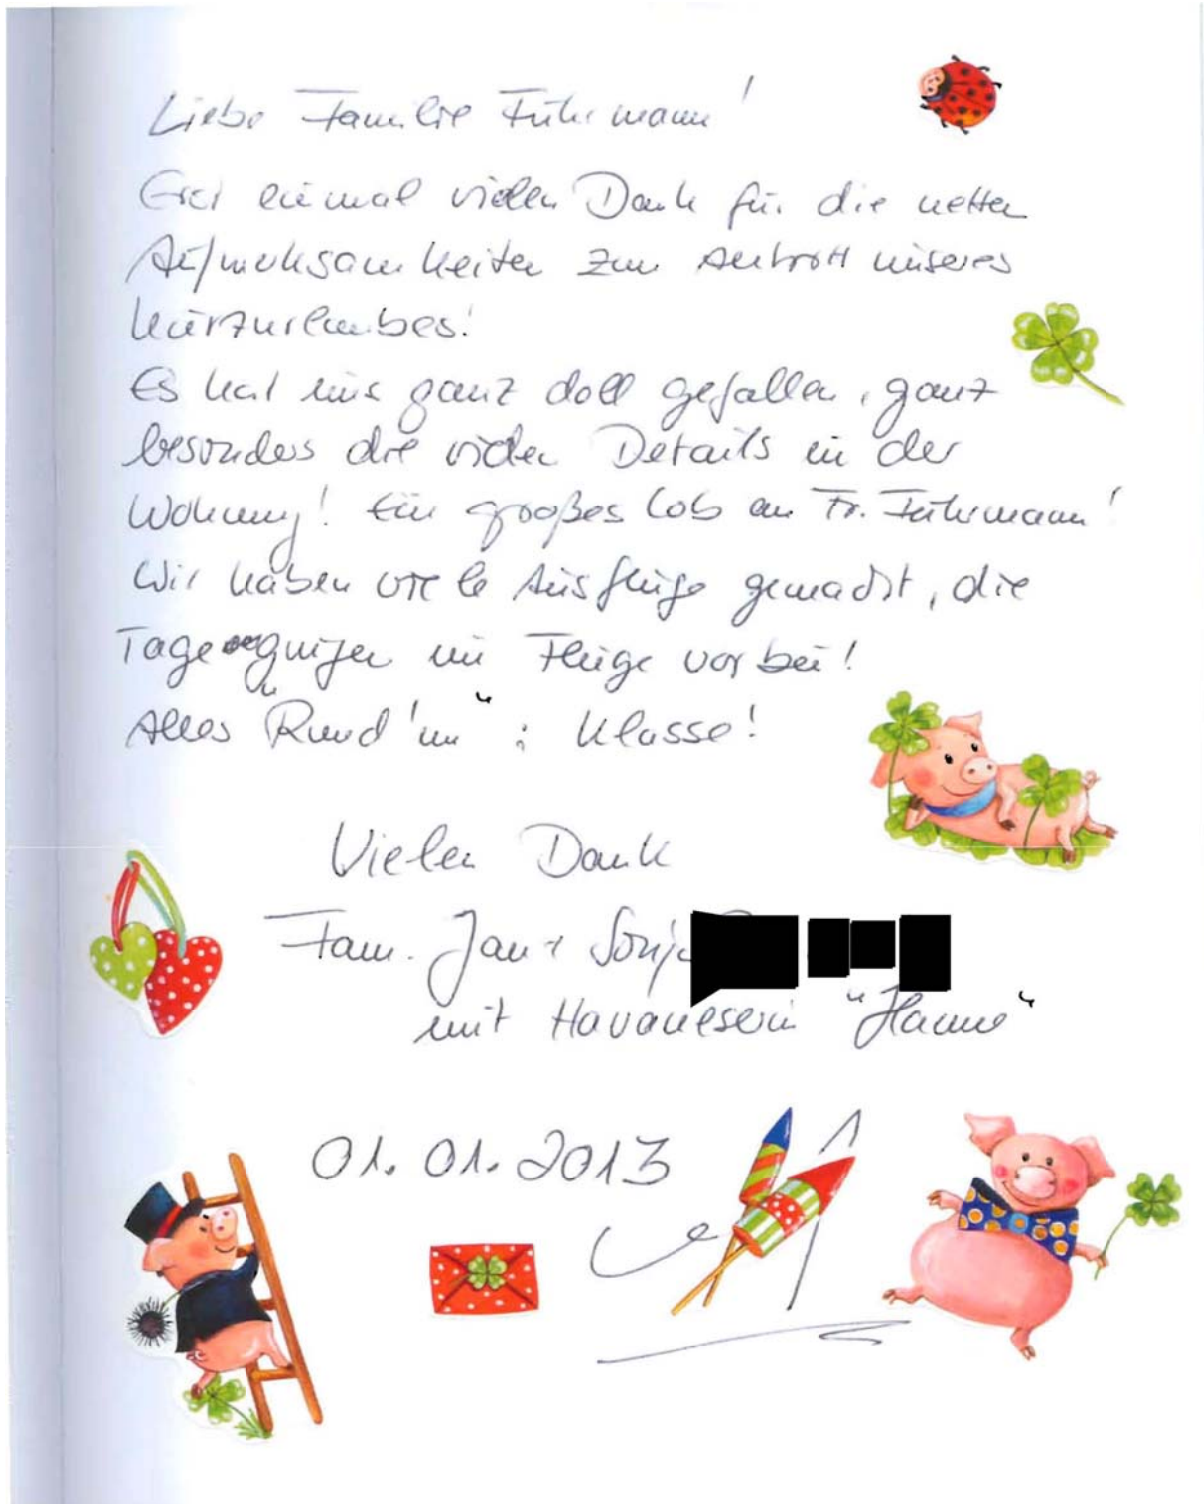 Liebe Familie Führmann!
Erst einmal vielen Dank für die netten
Aufmerksamkeiten zum Antritt unseres
Kurzurlaubes!
Es hat uns ganz doll gefallen, ganz
besonders die vielen Details in der
Wohnung! Ein großes Lob an Fr. Führmann!
Wir haben viele Ausflüge gemacht, die
Tage gingen im Fluge vorbei!
Alles "Rund'um": Klasse!
Vielen Dank
Fam. Jan + Sonja
mit Havaneserin "Hanne"
01.01.2013